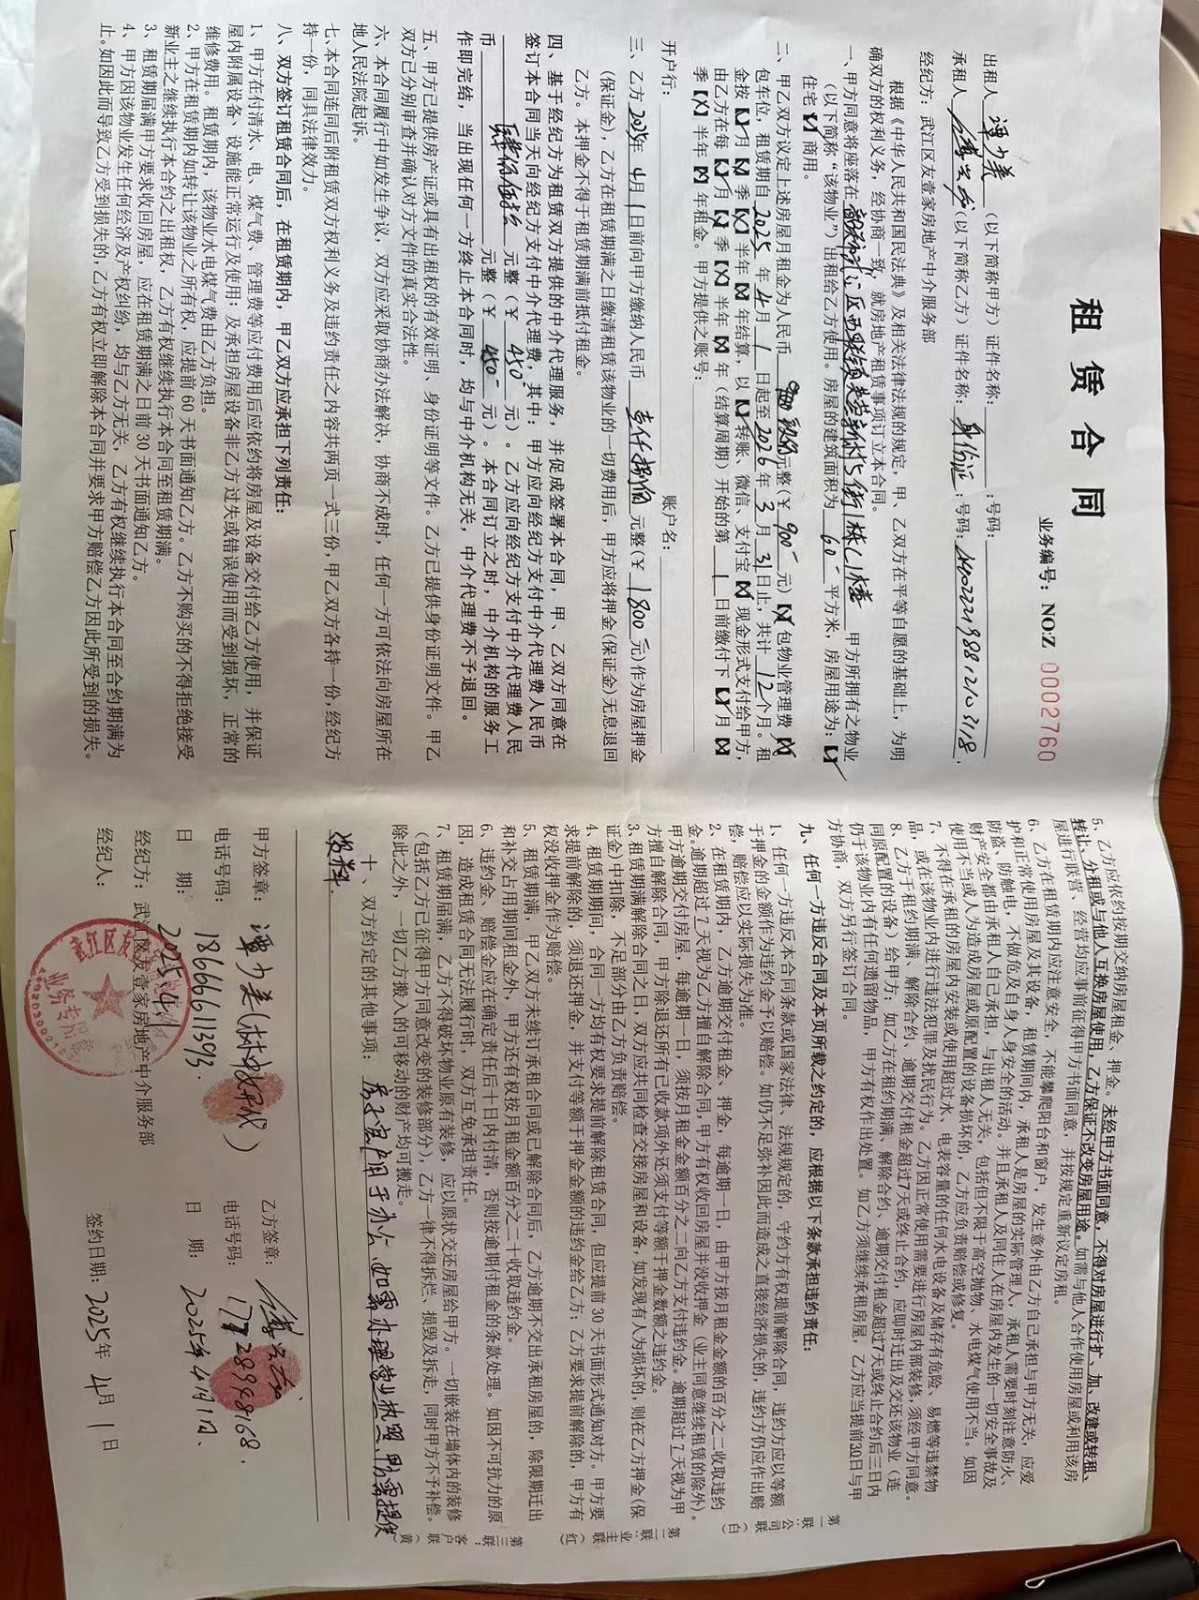 租赁合同
业务编号：NO:Z 0002760
出租人 谭少美 （以下简称甲方）证件名称： ：号码：
承租人 （以下简称乙方）证件名称：身份证：号码：
经纪方：武江区友壹家房地产中介服务部
根据《中华人民共和国民法典》及相关法律法规的规定，甲、乙双方在平等自愿的基础上，为明
确双方的权利义务，经协商一致，就房地产租赁事项订立本合同。
一、甲方同意将座落在 甲方所拥有之物业
（以下简称“该物业”）出租给乙方使用。房屋的建筑面积为 60 平方米，房屋用途为：【√】
住宅【√】商用。
二、甲乙双方议定上述房屋月租金为人民币 元整（￥900 元）【X】包物业管理费【X】
包车位，租赁期自 2025 年 4 月 1 日起至 2026 年 3 月 31 日止，共计 12 个月。租
金按【√】月【X】季【X】半年【X】年结算，以【√】转账、微信、支付宝【X】现金形式支付给甲方，
由乙方在每【√】月【X】季【X】半年【X】年（结算周期）开始的第 1 日前缴付下【√】月【X】
季【X】半年【X】年租金。甲方提供之账号：
开户行： 账户名：
三、乙方 2025年 4月 1日前向甲方缴纳人民币 壹仟捌佰 元整（￥1800元）作为房屋押金
（保证金），乙方在租赁期满之日缴清租赁该物业的一切费用后，甲方应将押金（保证金）无息退回
乙方。本押金不得于租赁期满前抵付租金。
四、基于经纪方为租赁双方提供的中介代理服务，并促成签署本合同，甲、乙双方同意在
签订本合同当天向经纪方支付中介代理费，其中：甲方应向经纪方支付中介代理费人民币
肆佰伍拾 元整（￥450 元）。乙方应向经纪方支付中介代理费人民
币 元整（￥450 元）。本合同订立之时，中介机构的服务工
作即完结，当出现任何一方终止本合同时，均与中介机构无关，中介代理费不予退回。
五、甲方已提供房产证或具有出租权的有效证明、身份证明等文件；乙方已提供身份证明文件。甲乙
双方已分别审查并确认对方文件的真实合法性。
六、本合同履行中如发生争议，双方应采取协商办法解决，协商不成时，任何一方可依法向房屋所在
地人民法院起诉。
七、本合同连同后附租赁双方权利义务及违约责任之内容共两页一式三份，甲乙双方各持一份，经纪方
持一份，同具法律效力。
八、双方签订租赁合同后，在租赁期内，甲乙双方应承担下列责任：
1、甲方在付清水、电、煤气费、管理费等应付费用后应依约将房屋及设备交付给乙方使用，并保证
屋内附属设备、设施能正常运行及使用；及承担房屋设备非乙方过失或错误使用而受到损坏，正常的
维修费用。租赁期内，该物业水电煤气费由乙方负担。
2、甲方在租赁期内如转让该物业之所有权，应提前60天书面通知乙方。乙方不购买的不得拒绝接受
新业主之继续执行本合约之出租权，乙方有权继续执行本合同至租赁期满。
3、租赁期届满甲方要求收回房屋，应在租赁期满之日前30天书面通知乙方。
4、甲方因该物业发生任何经济及产权纠纷，均与乙方无关，乙方有权继续执行本合同至合约期满为
止。如因此而导致乙方受到损失的，乙方有权立即解除本合同并要求甲方赔偿乙方因此所受到的损失。
5、乙方应依约按期交纳房屋租金，押金。未经甲方书面同意，不得对房屋进行扩、加、改建或转租、
转让、分租或与他人互换房屋使用，乙方保证不改变房屋用途。如需与他人合作使用房屋或利用该房
屋进行联营、经营均应事前征得甲方书面同意，并按规定重新议定房租。
6、乙方在租赁期内应注意安全，不能攀爬阳台和窗户，发生意外由乙方自己承担与甲方无关，应爱
护和正常使用房屋及其设备，租赁期间内，承租人是房屋的实际管理人，承租人需要时刻注意防火、
防盗、防触电，不做危及自身人身安全的活动。并且承租人及同住人在房屋内发生的一切安全事故及
财产安全都由承租人自己承担，与出租人无关，包括但不限于高空抛物、水电煤气使用不当。如因
使用不当或人为造成房屋或原配置的设备损坏的，乙方应负责赔偿或修复。
7、不得在承租的房屋内安装或使用超过水、电表容量的任何水电设备及储存有危险、易燃等违禁物
品，或在该物业内进行违法犯罪及扰民行为。乙方因正常使用需要进行房屋内部装修，须经甲方同意。
8、乙方于租约期满、解除合约、逾期交付租金超过7天或终止合约，应即时迁出及交还该物业（连
同原配置的设备）给甲方；如乙方在租约期满、解除合约、逾期交付租金超过7天或终止合约后三日内
仍于该物业内有任何遗留物品，甲方有权作出处置。如乙方须继续承租房屋，乙方应当提前30日与甲
方协商，双方另行签订合同。
九、任何一方违反合同及本页所载之约定的，应根据以下条款承担违约责任：
1、任何一方违反本合同条款或国家法律、法规规定的，守约方有权提前解除合同，违约方应以等额
于押金的金额作为违约金予以赔偿。如仍不足弥补因此而造成之直接经济损失的，违约方仍应作出赔
偿，赔偿应以实际损失为准。
2、在租赁期内，乙方逾期交付租金、押金，每逾期一日，由甲方按月租金金额的百分之二收取违约
金。逾期超过7天视为乙方擅自解除合同，甲方有权收回房屋并没收押金（业主同意继续租赁的除外）。
甲方逾期交付房屋，每逾期一日，须按月租金金额百分之二向乙方支付违约金。逾期超过7天视为甲
方擅自解除合同，甲方除退还所有已收款项外还须支付等额于押金数额之违约金。
3、租赁期满解除合同之日，双方应共同检查交接房屋和设备，如发现有人为损坏的，则在乙方押金（保
证金）中扣除，不足部分由乙方负责赔偿。
4、租赁期期间，合同一方均有权要求提前解除租赁合同，但应提前30天书面形式通知对方。甲方要
求提前解除的，须退还押金，并支付等额于押金金额的违约金给乙方；乙方要求提前解除的，甲方有
权没收押金作为赔偿。
5、租赁期满，甲乙双方未续订承租合同或已解除合同后，乙方逾期不交出承租房屋的，除限期迁出
和补交占用期间租金外，甲方还有权按月租金额百分之二十收取违约金。
6、违约金、赔偿金应在确定责任后十日内付清，否则按逾期付租金的条款处理。如因不可抗力的原
因，造成租赁合同无法履行时，双方互免承担责任。
7、租赁期届满，乙方不得破坏物业原有装修，应以原状交还房屋给甲方。一切嵌装在墙体内的装修
（包括乙方已征得甲方同意改变的装修部分），乙方一律不得拆烂、损毁及拆走，同时甲方不予补偿。
除此之外，一切乙方搬入的可移动的财产均可搬走。
十、双方约定的其他事项： 房子宜户用于办公，如需办理营业执照，甲方需提供
资料。
第一联：公司联（白） 第二联：业主联（红） 第三联：客户联（黄）
甲方签章：谭少美（林 代）
电话号码：18666611393.
日 期：2025.4.1
经纪方：武江区友壹家房地产中介服务部
经纪人：
武江区友 业务专用
乙方签章：
电话号码：
日 期：2025年4月1日.
签约日期：2025年 4月 1日